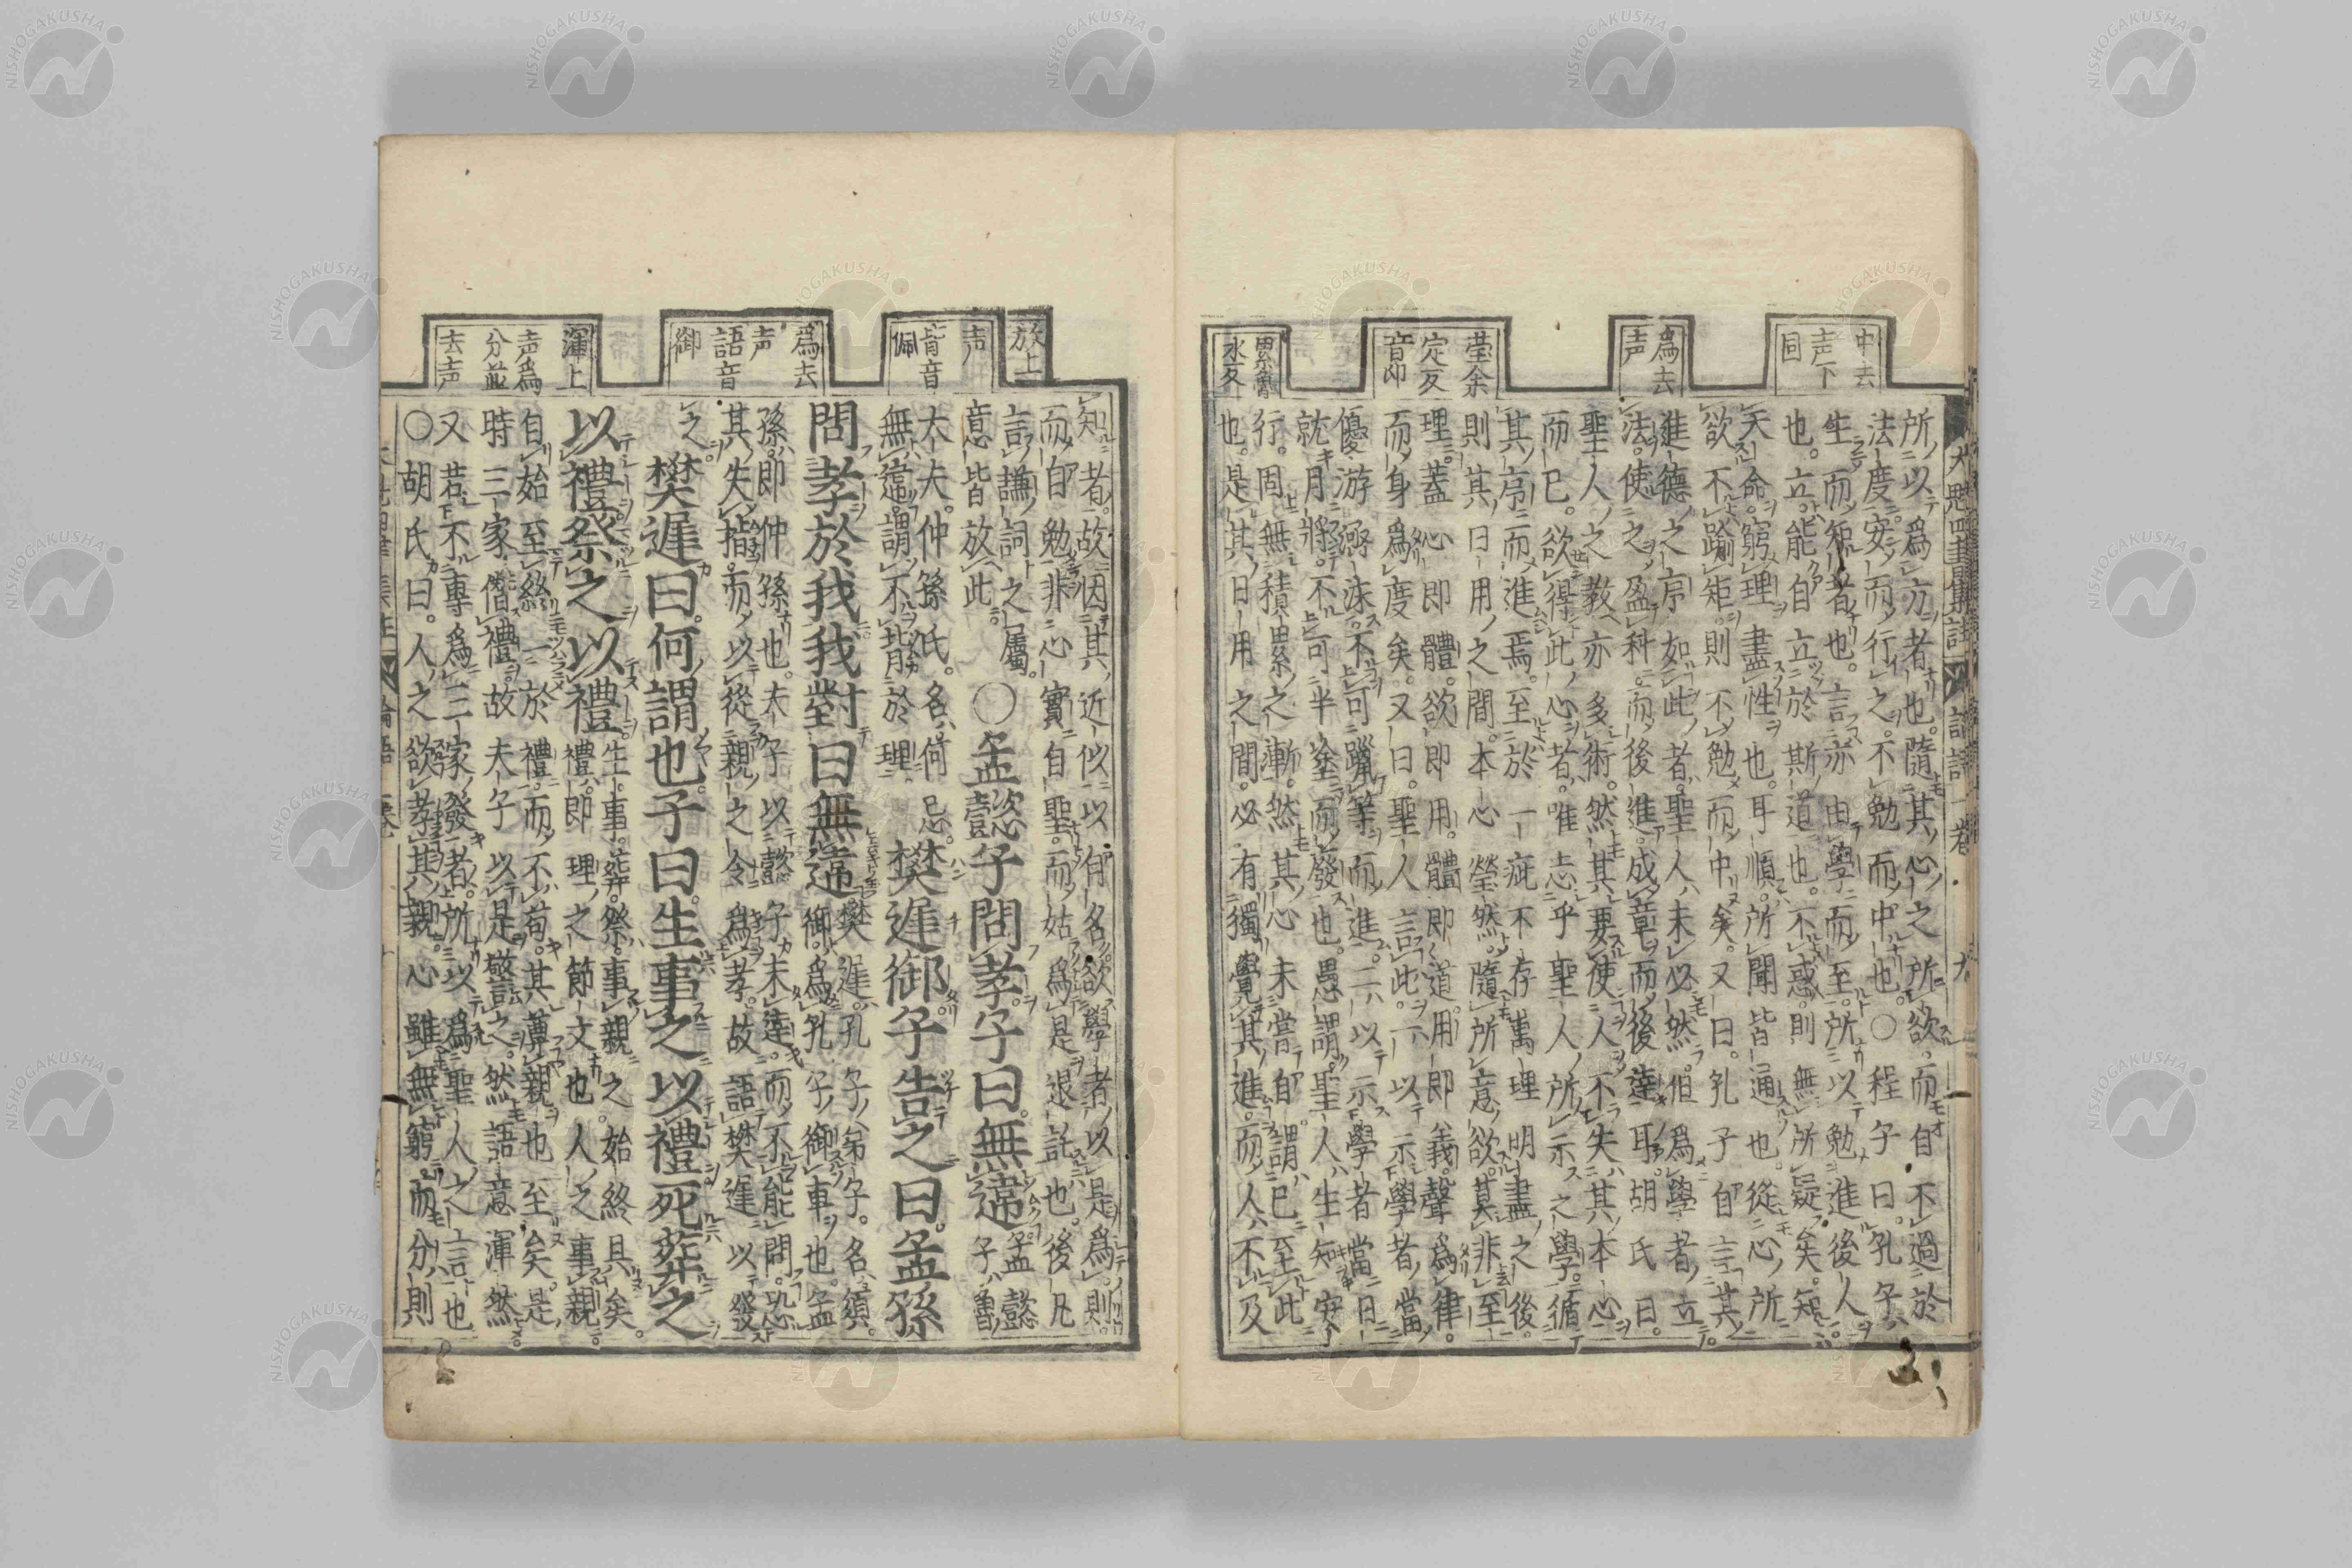 中去
声下
同
爲去
声
瑩余
定反
音即
累魯
水反
大魁四書集註 論語一卷 九
所以爲方者也。隨其心之所欲而自不過於
法度。安而行之。不勉而中也。○程子曰。孔子
生而知者也。言亦由學而至。所以勉進後人
也。立。能自立於斯道也。不惑。則無所疑矣。知
天命。窮理盡性也。耳順。所聞皆通也。從心所
欲不踰矩。則不勉而中矣。又曰。孔子自言其
進德之序如此者。聖人未必然。但爲學者立
法。使之盈科而後進。成章而後達耳。胡氏曰。
聖人之教亦多術。然其要使人不失其本心
而已。欲得此心者。唯志乎聖人所示之學。循
其序而進焉。至於一疵不存萬理明盡之後。
則其日用之間。本心瑩然。隨所意欲。莫非至
理。蓋心即體。欲即用。體即道。用即義。聲爲律。
而身爲度矣。又曰。聖人言此。一以示學者。當
優游涵泳。不可躐等而進。二以示學者當日
就月將。不可半塗而發也。愚謂聖人生知安
行。固無積累之漸。然其心未嘗自謂已至此
也。是其日用之間。必有獨覺其進。而人不及
放上
声
背音
佩
爲去
声
語音
御
渾上
声爲
分並
去声
知者。故因其近似以自名。欲學者以是爲則。
而自勉。非心實自聖。而姑爲是退託也。後凡
言謙詞之屬。
意皆放此。
○孟懿子問孝子曰。無違
孟懿
子魯
大夫。仲孫氏。名何忌。
無違。謂不背於理。
樊遲御子告之曰。孟孫
問孝於我我對曰無違
樊遲。孔子弟子。名須。
御。爲孔子御車也。孟
孫。即仲孫也。夫子以懿子未達。而不能問。恐
其失指。而以從親之令爲孝。故語樊遲以發
之。
樊遲曰。何謂也。子曰。生事之以禮死葬之
以禮祭之以禮
生事葬祭。事親之始終具矣。
禮。即理之節文也。人之事親
自始至終。一於禮。而不苟。其尊親也至矣。是
時三家僭禮。故夫子以是警之。然語意渾然
又若不專爲三家發者。所以爲聖人之言也
○胡氏曰。人之欲孝其親。心雖無窮。而分則
NISHOGAKUSHA